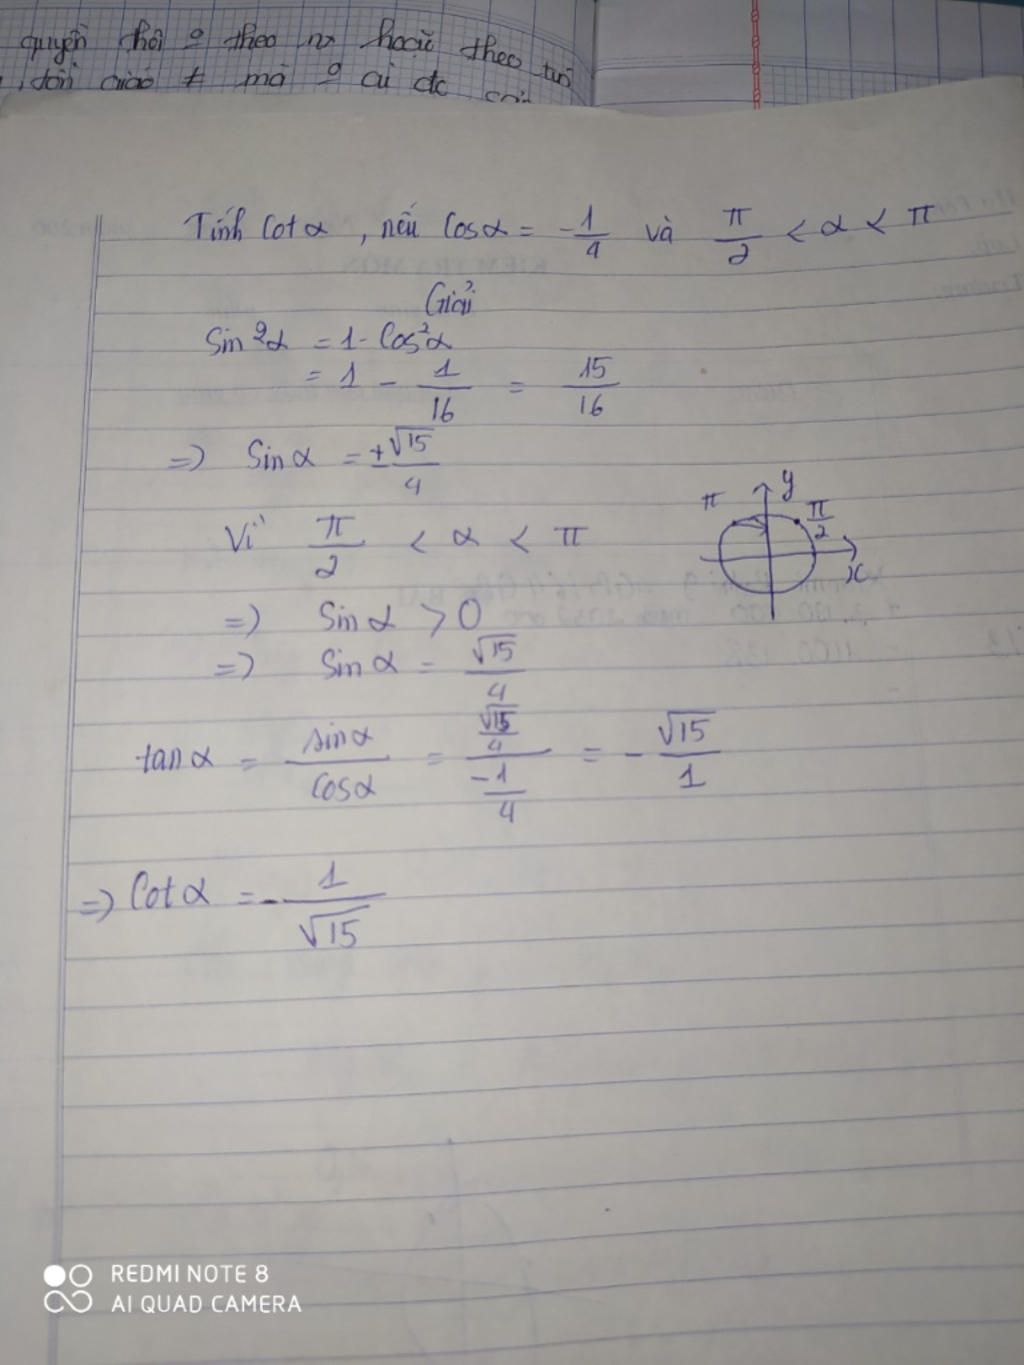 quyền
theo
hoặc theo
mà
Tính Cot α , nếu Cosα = -1/4 và π/2 < α < π
Giải
Sin²α = 1 - Cos²α
= 1 - 1/16 = 15/16
=> Sin α = ±√15/4
y
π
π/2
x
Vì π/2 < α < π
=> Sin α > 0
=> Sin α = √15/4
tan α = sinα/Cosα = (√15/4)/(-1/4) = - √15/1
=> Cot α = - 1/√15
REDMI NOTE 8
AI QUAD CAMERA